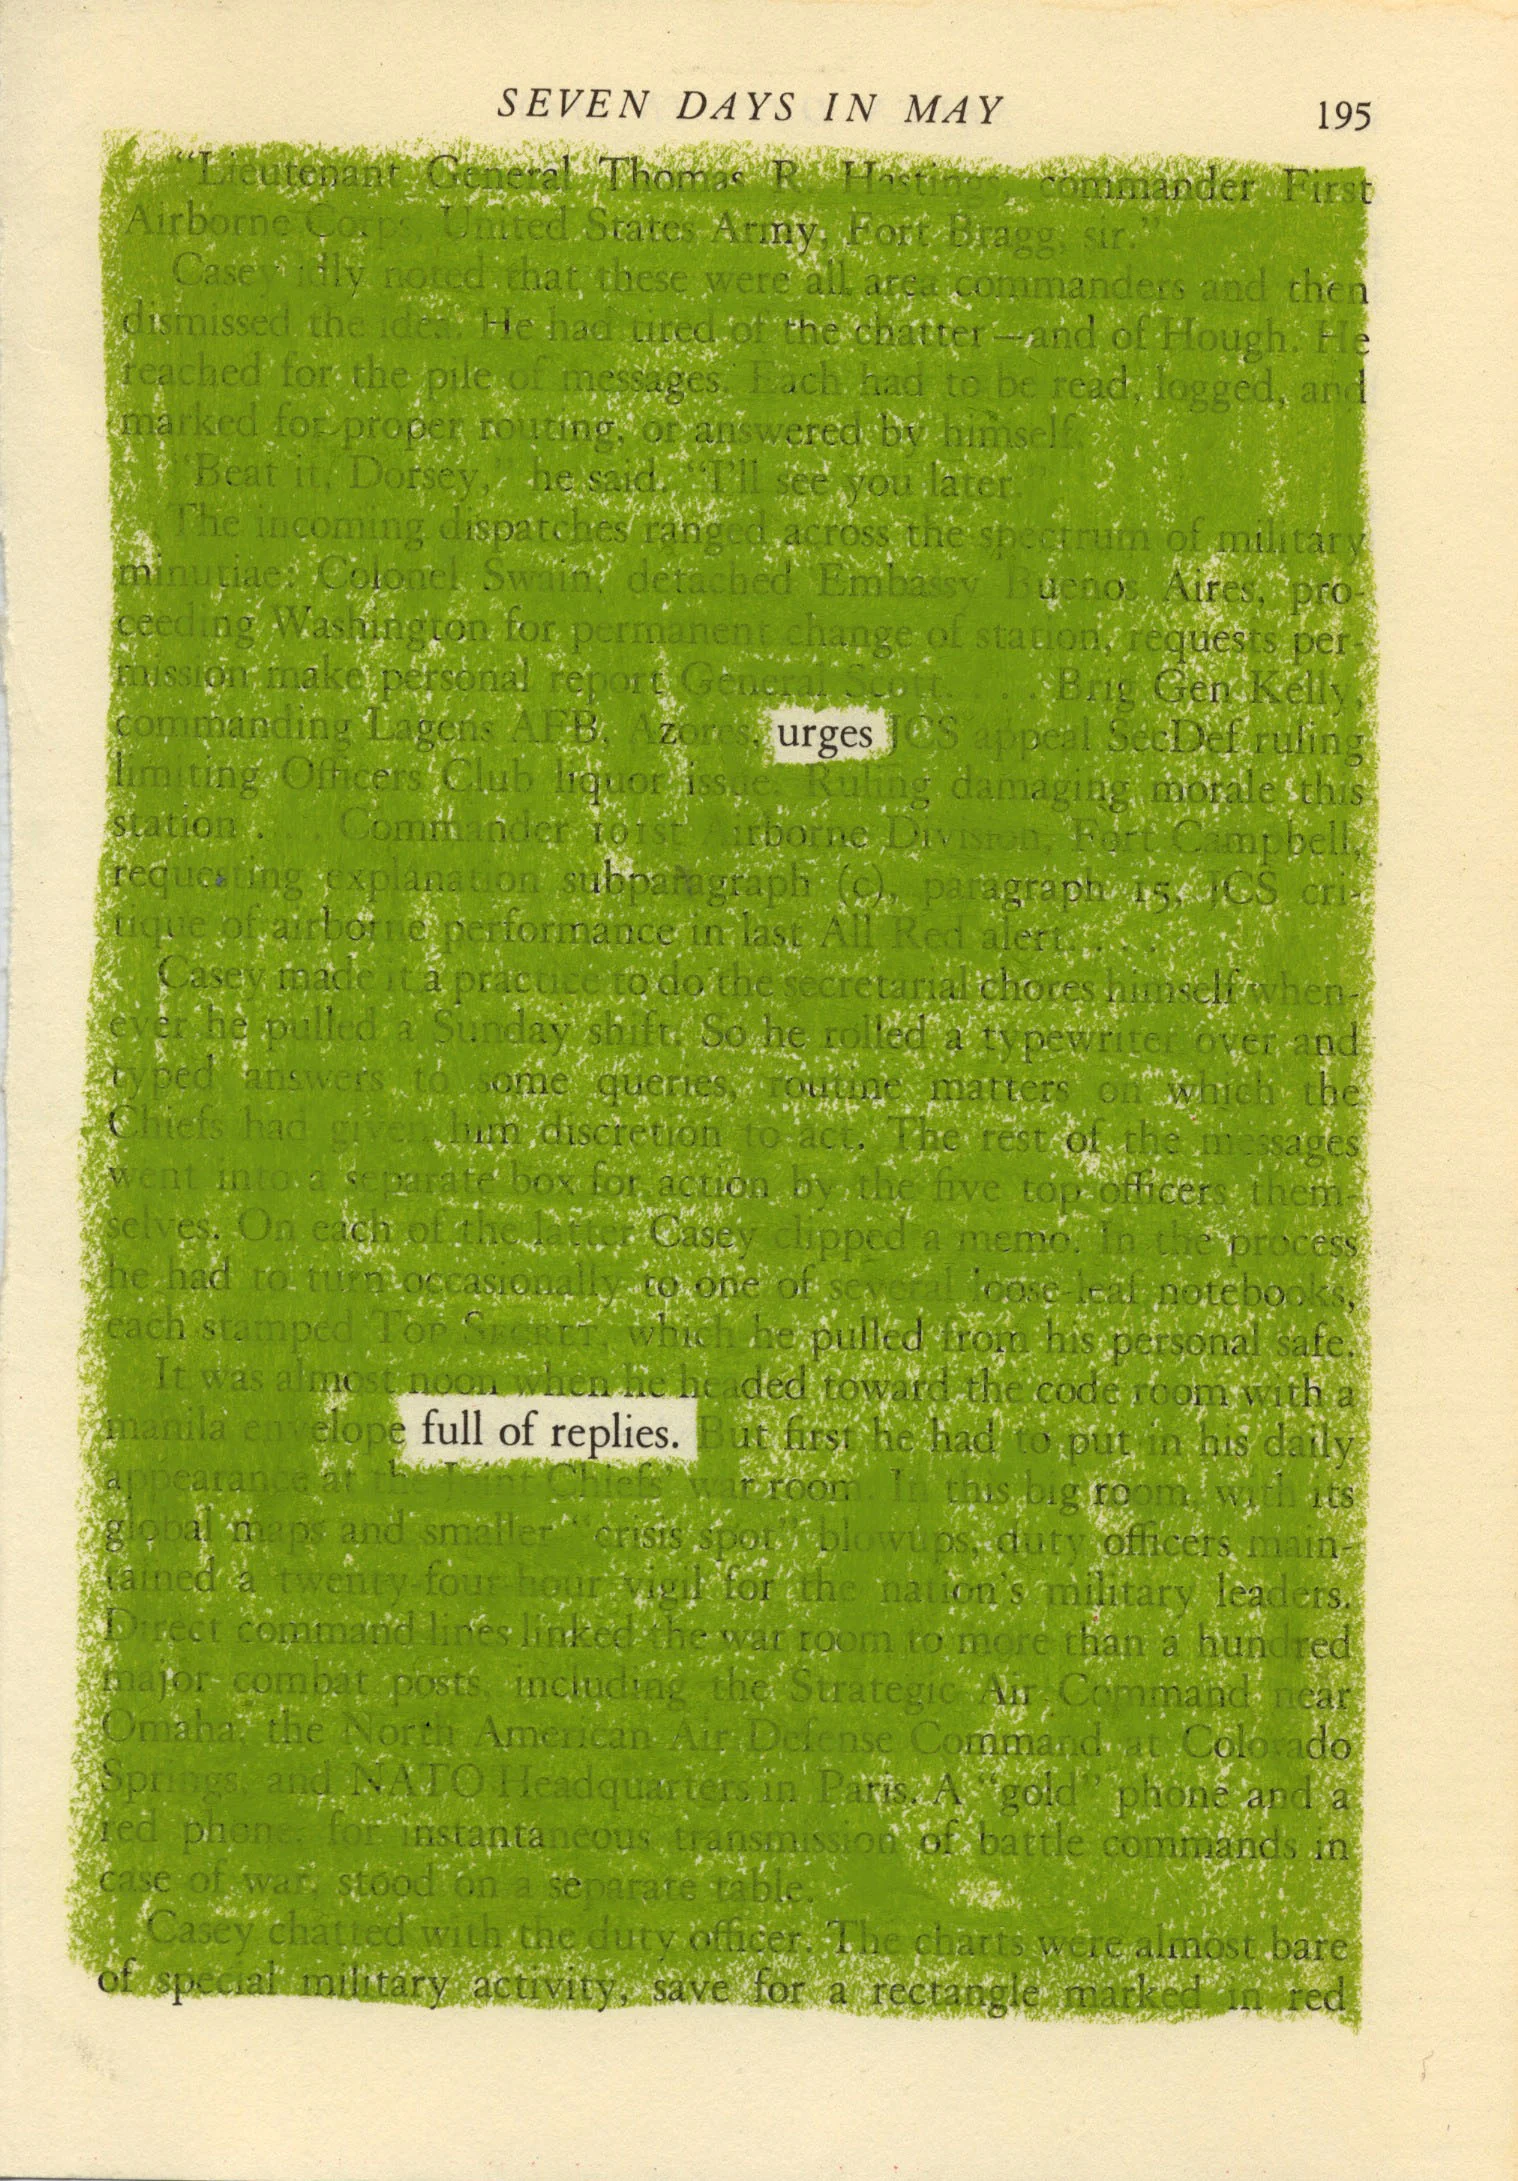 SEVEN DAYS IN MAY 195
"Lieutenant General Thomas R. Hastings, commander First
Airborne Corps, United States Army, Fort Bragg, sir."
Casey idly noted that these were all area commanders and then
dismissed the idea. He had tired of the chatter—and of Hough. He
reached for the pile of messages. Each had to be read, logged, and
marked for proper routing, or answered by himself.
"Beat it, Dorsey," he said. "I'll see you later."
The incoming dispatches ranged across the spectrum of military
minutiae: Colonel Swain, detached Embassy Buenos Aires, pro-
ceeding Washington for permanent change of station, requests per-
mission make personal report General Scott. . . . Brig Gen Kelly,
commanding Lagens AFB, Azores, urges JCS appeal SecDef ruling
limiting Officers Club liquor issue. Ruling damaging morale this
station . . . Commander 101st Airborne Division, Fort Campbell,
requesting explanation subparagraph (c), paragraph 15, JCS cri-
tique of airborne performance in last All Red alert. . . .
Casey made it a practice to do the secretarial chores himself when-
ever he pulled a Sunday shift. So he rolled a typewriter over and
typed answers to some queries, routine matters on which the
Chiefs had given him discretion to act. The rest of the messages
went into a separate box for action by the five top officers them-
selves. On each of the latter Casey clipped a memo. In the process
he had to turn occasionally to one of several loose-leaf notebooks,
each stamped TOP SECRET, which he pulled from his personal safe.
It was almost noon when he headed toward the code room with a
manila envelope full of replies. But first he had to put in his daily
appearance at the Joint Chiefs' war room. In this big room, with its
global maps and smaller "crisis spot" blowups, duty officers main-
tained a twenty-four-hour vigil for the nation's military leaders.
Direct command lines linked the war room to more than a hundred
major combat posts, including the Strategic Air Command near
Omaha, the North American Air Defense Command at Colorado
Springs, and NATO Headquarters in Paris. A "gold" phone and a
red phone, for instantaneous transmission of battle commands in
case of war, stood on a separate table.
Casey chatted with the duty officer. The charts were almost bare
of special military activity, save for a rectangle marked in red